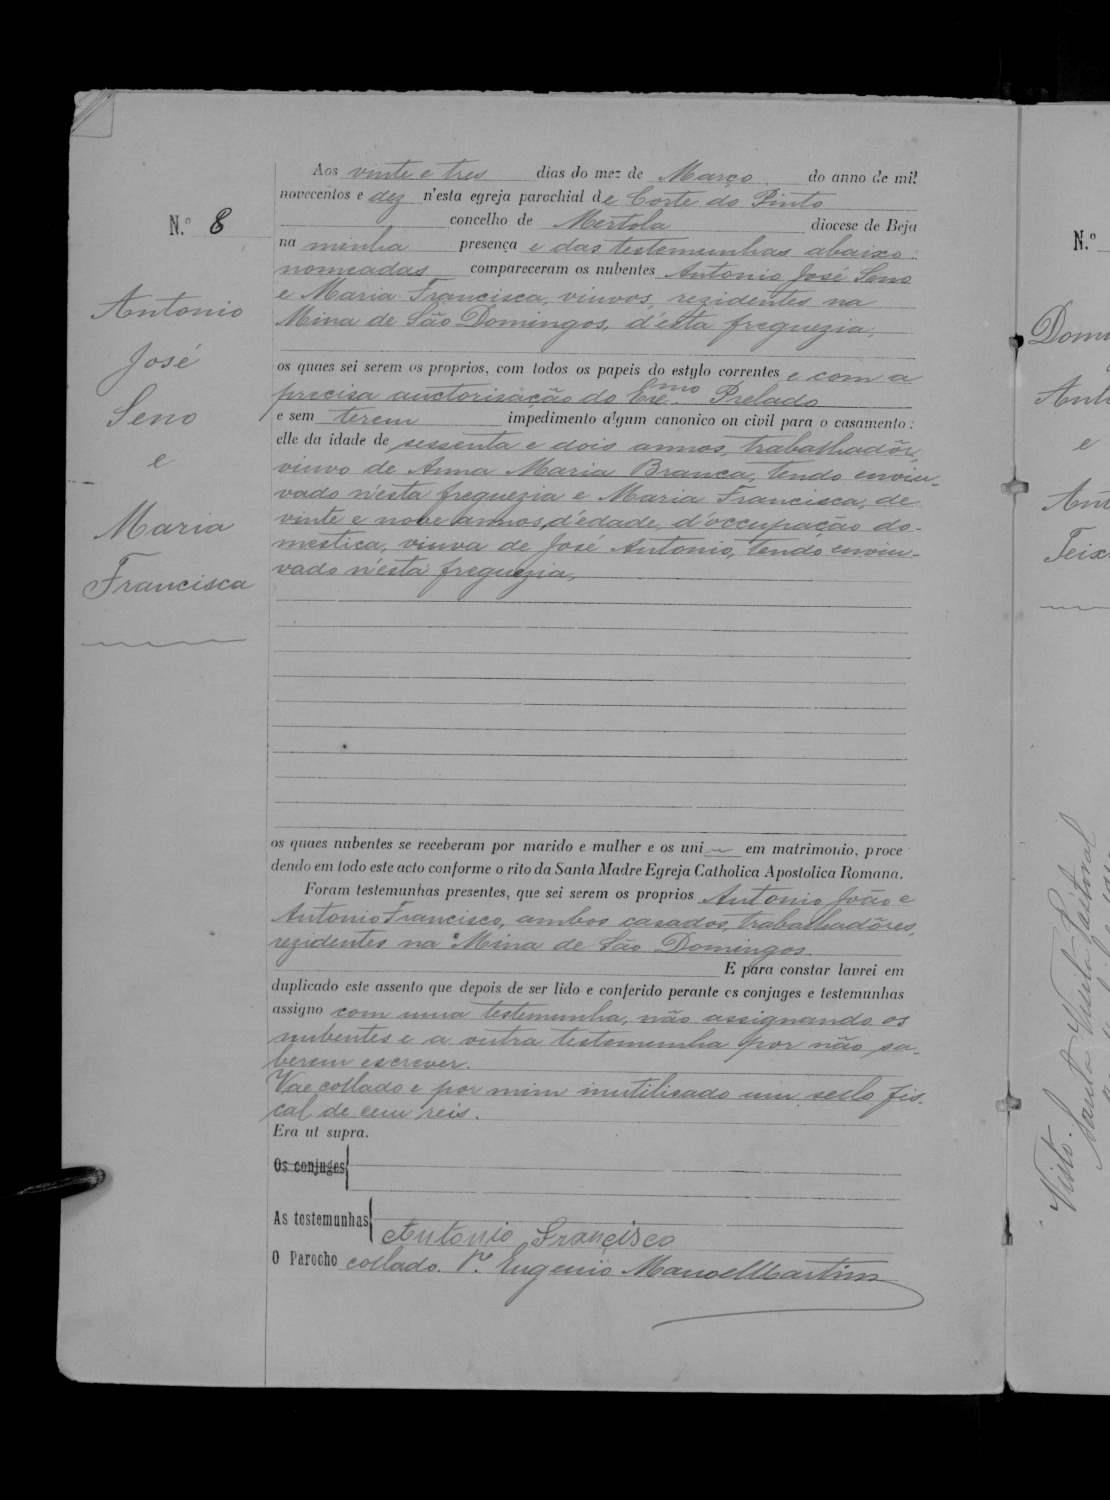 N.º 8
Antonio
José
Seno
e
Maria
Francisca
Aos vinte e tres dias do mez de Março do anno de mil
novecentos e dez n'esta egreja parochial de Corte do Pinto
concelho de Mertola diocese de Beja
na minha presença e das testemunhas abaixo
nomeadas compareceram os nubentes Antonio José Seno
e Maria Francisca, viuvos, rezidentes na
Mina de São Domingos, d'esta freguezia,
os quaes sei serem os proprios, com todos os papeis do estylo correntes e com a
precisa auctorisação do Exmo. Prelado
e sem terem impedimento algum canonico ou civil para o casamento:
elle da idade de sessenta e dois annos, trabalhadôr,
viuvo de Anna Maria Branca, tendo enviu-
vado n'esta freguezia e Maria Francisca, de
vinte e nove annos, d'edade, d'occupação do-
mestica, viuva de José Antonio, tendo enviu-
vado n'esta freguezia,
os quaes nubentes se receberam por marido e mulher e os uni em matrimonio, proce
dendo em todo este acto conforme o rito da Santa Madre Egreja Catholica Apostolica Romana.
Foram testemunhas presentes, que sei serem os proprios Antonio João e
Antonio Francisco, ambos casados, trabalhadôres,
rezidentes na Mina de São Domingos.
E para constar lavrei em
duplicado este assento que depois de ser lido e conferido perante os conjuges e testemunhas
assigno com uma testemunha, não assignando os
nubentes e a outra testemunha por não sa-
berem escrever.
Vae collado e por mim inutilisado um sello fis-
cal de cem reis.
Era ut supra.
Os conjuges
As testemunhas
Antonio Francisco
O Parocho collado. Pe. Eugenio Manoel Martins
N.º
Antº
e
Ant
Teix
Visto.
Santa Visita Pastoral